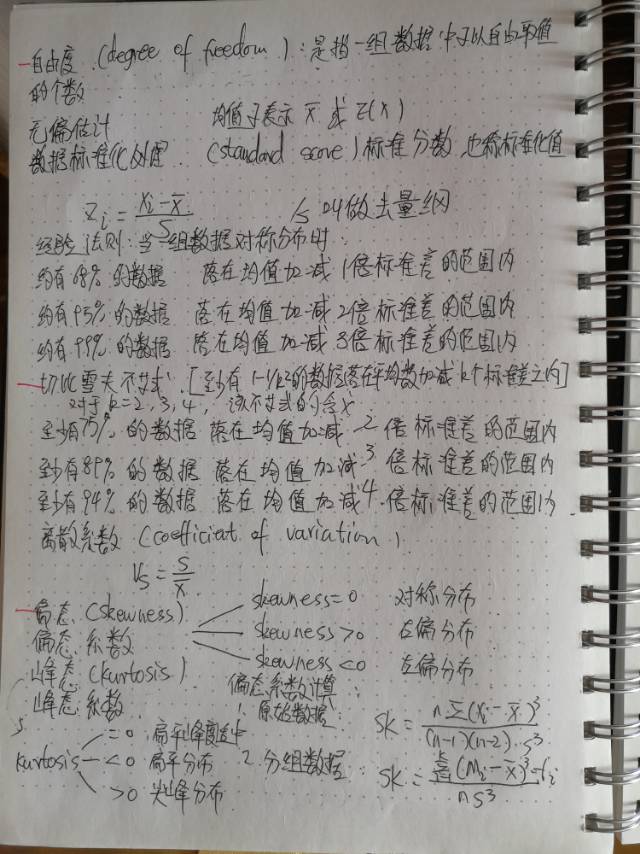 自由度 (degree of freedom): 是指一组数据中可以自由取值
的个数
无偏估计 均值可表示 x̄ 或 E(x)
数据标准化处理 (standard score) 标准分数,也称标准化值
Zi = (xi - x̄) / S
经验法则: 当一组数据对称分布时:
约有68%的数据 落在均值加减1倍标准差的范围内
约有95%的数据 落在均值加减2倍标准差的范围内
约有99%的数据 落在均值加减3倍标准差的范围内
切比雪夫不等式 [至少有 1-1/k²的数据落在平均数加减k个标准差之内]
对于k=2,3,4, 该不等式的含义
至少有75%的数据 落在均值加减 2 倍标准差的范围内
至少有89%的数据 落在均值加减 3 倍标准差的范围内
至少有94%的数据 落在均值加减 4 倍标准差的范围内
离散系数 (coefficient of variation)
Vs = S / x̄
偏态 (skewness) skewness=0 对称分布
偏态系数 skewness>0 右偏分布
峰态 (kurtosis) skewness<0 左偏分布
峰态系数 偏态系数计算:
1. 原始数据: SK = nΣ(xi - x̄)³ / (n-1)(n-2)·s³
=0 扁平峰度适中
kurtosis <0 扁平分布 2. 分组数据: SK = Σ(Mi - x̄)³fi / ns³
>0 尖峰分布